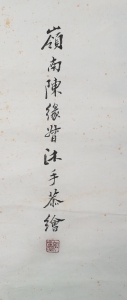 嶺南陳緣督沐手恭繪